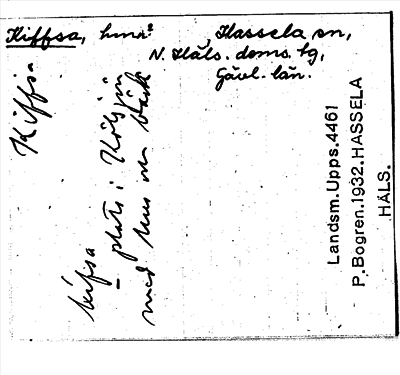 Kiffsa, hmn? , Hassela sn,
N. Häls. doms. tg,
Gävl. län.
Kiffsa
kifsa
– plats i Kölsjön
med hus och bäck
Landsm. Upps. 4461
P. Bogren. 1932. HASSELA
HÄLS.